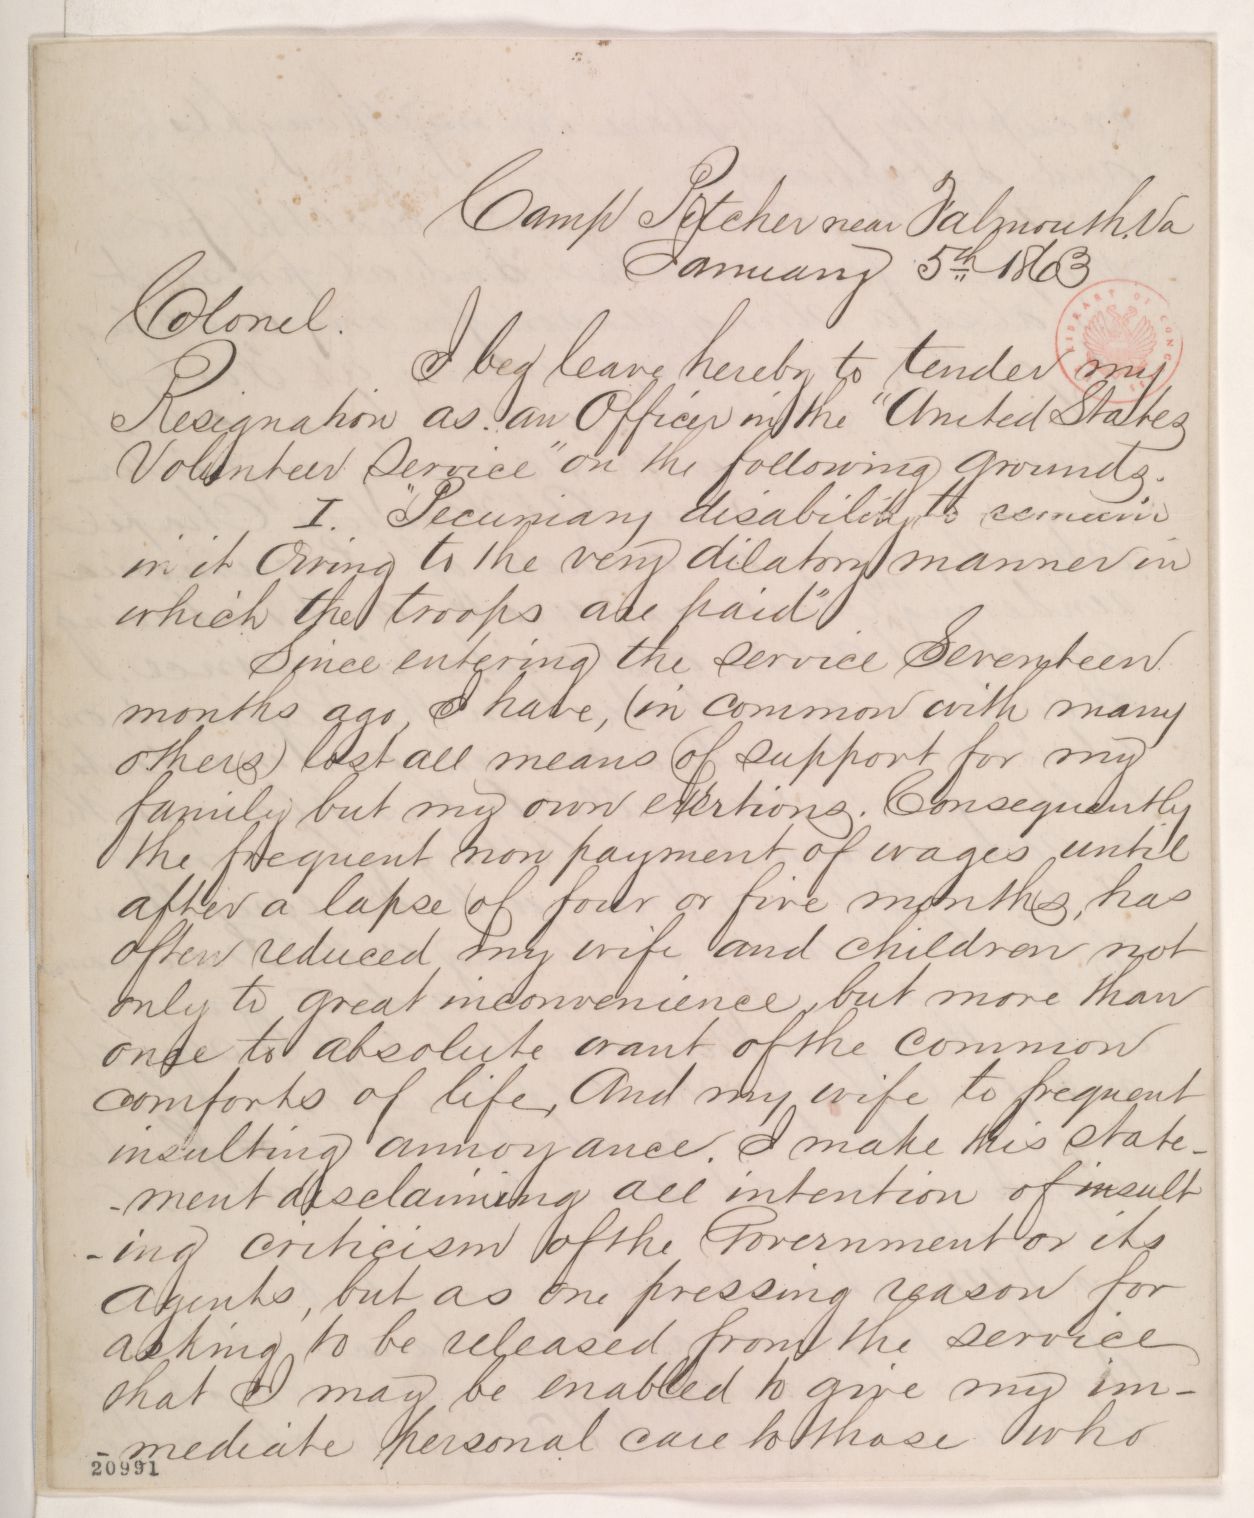 Camp Pitcher near Falmouth. Va
January 5th 1863
Colonel.
LIBRARY OF CONG
I beg leave hereby to tender my
Resignation as an Officer in the "United States
Volunteer Service" on the following grounds.
I. "Pecuniary disability to remain
in it Owing to the very dilatory manner in
which the troops are paid"
Since entering the service Seventeen
months ago, I have, (in common with many
others) lost all means of support for my
family but my own exertions. Consequently
the frequent non payment of wages until
after a lapse of four or five months, has
often reduced my wife and children not
only to great inconvenience, but more than
once to absolute want of the common
comforts of life, And my wife to frequent
insulting annoyance. I make this state-
-ment disclaiming all intention of insult
-ing criticism of the Government or its
agents, but as one pressing reason for
asking to be released from the service
that I may be enabled to give my im-
-mediate personal care to those who
20991